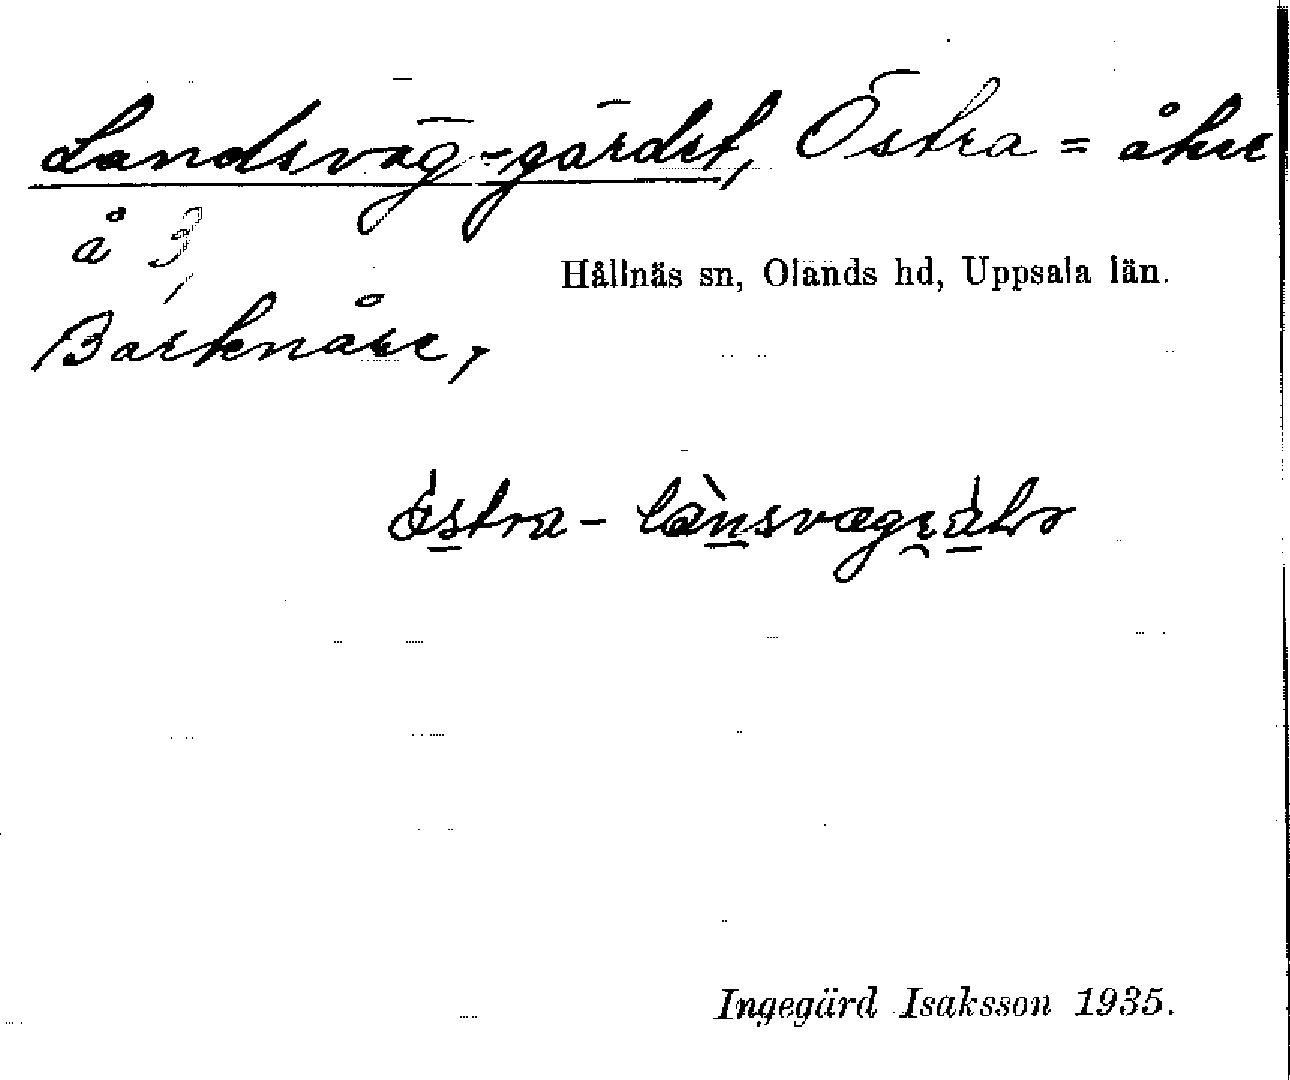 Landsväg-gärdet, Östra = åker
å 3,
Hållnäs sn, Olands hd, Uppsala län.
Barknåre,
Ingegärd Isaksson 1935.